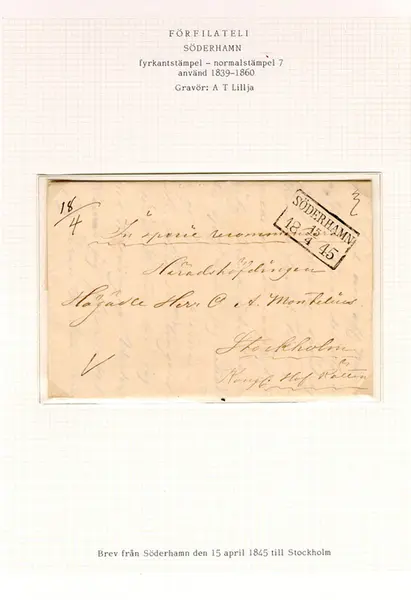 FÖRFILATELI
SÖDERHAMN
fyrkantstämpel – normalstämpel 7
använd 1839–1860
Gravör: A T Lillja
18/4
SÖDERHAMN
15
18 4 45
Häradshöfdingen
Högädle Herr C A. Montelius
Stockholm
Kongl. Hof Rätten
Brev från Söderhamn den 15 april 1845 till Stockholm